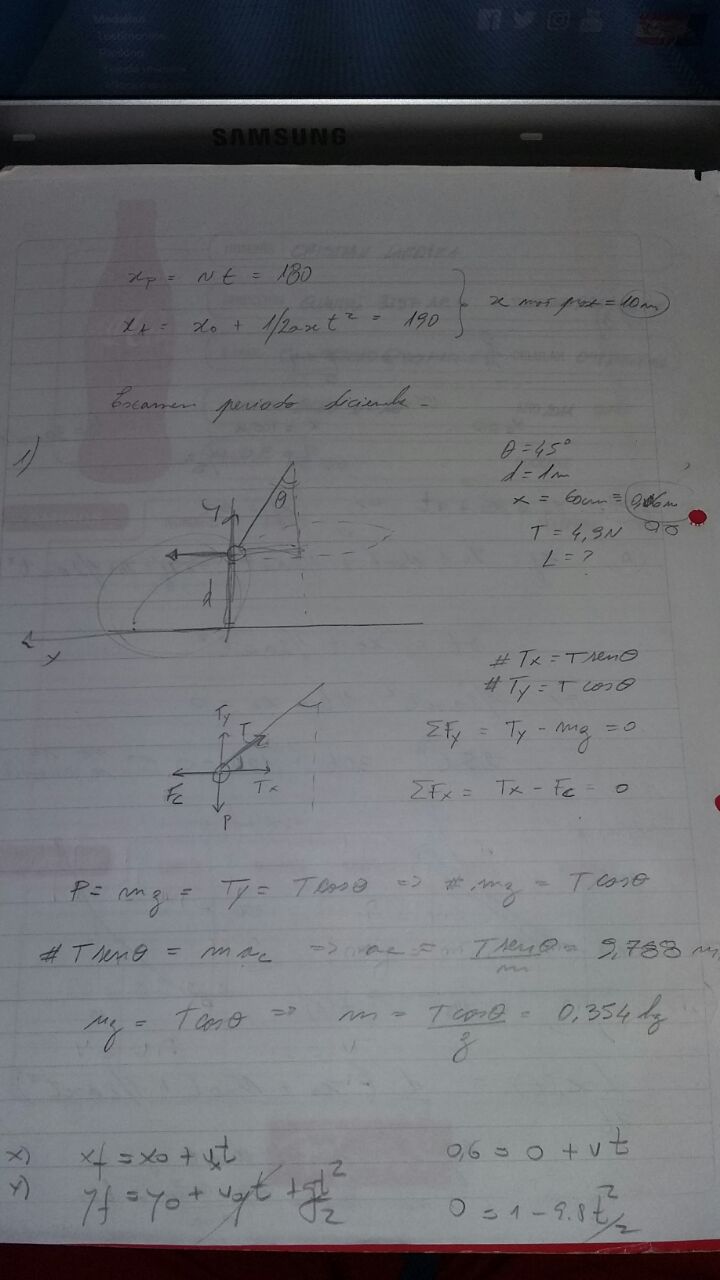 SAMSUNG
xp = vt = 180
xt = x0 + 1/2axt² = 190
x = 10m
Examen periodo diciembre -
1)
θ = 45°
d = 1m
x = 60cm = 0,06m
T = 4,9N
L = ?
y
θ
d
x
# Tx = T senθ
# Ty = T cosθ
Ty
T
Fc
Tx
P
ΣFy = Ty - mg = 0
ΣFx = Tx - Fc = 0
P = mg = Ty = T cosθ => # mg = T cosθ
# T senθ = m ac => ac = T senθ / m = 9,788 m
mg = T cosθ => m = T cosθ / g = 0,354 kg
x) xf = x0 + vxt 0,6 = 0 + vt
y) yf = y0 + voyt + gt²/2 0 = 1 - 9.8t²/2